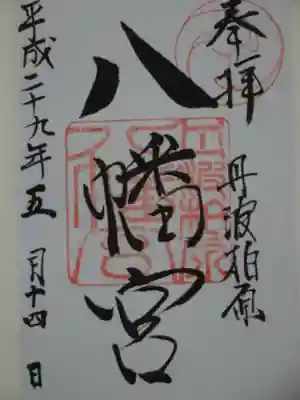 奉拝
丹波柏原
八幡宮
平成二十九年五月十四日